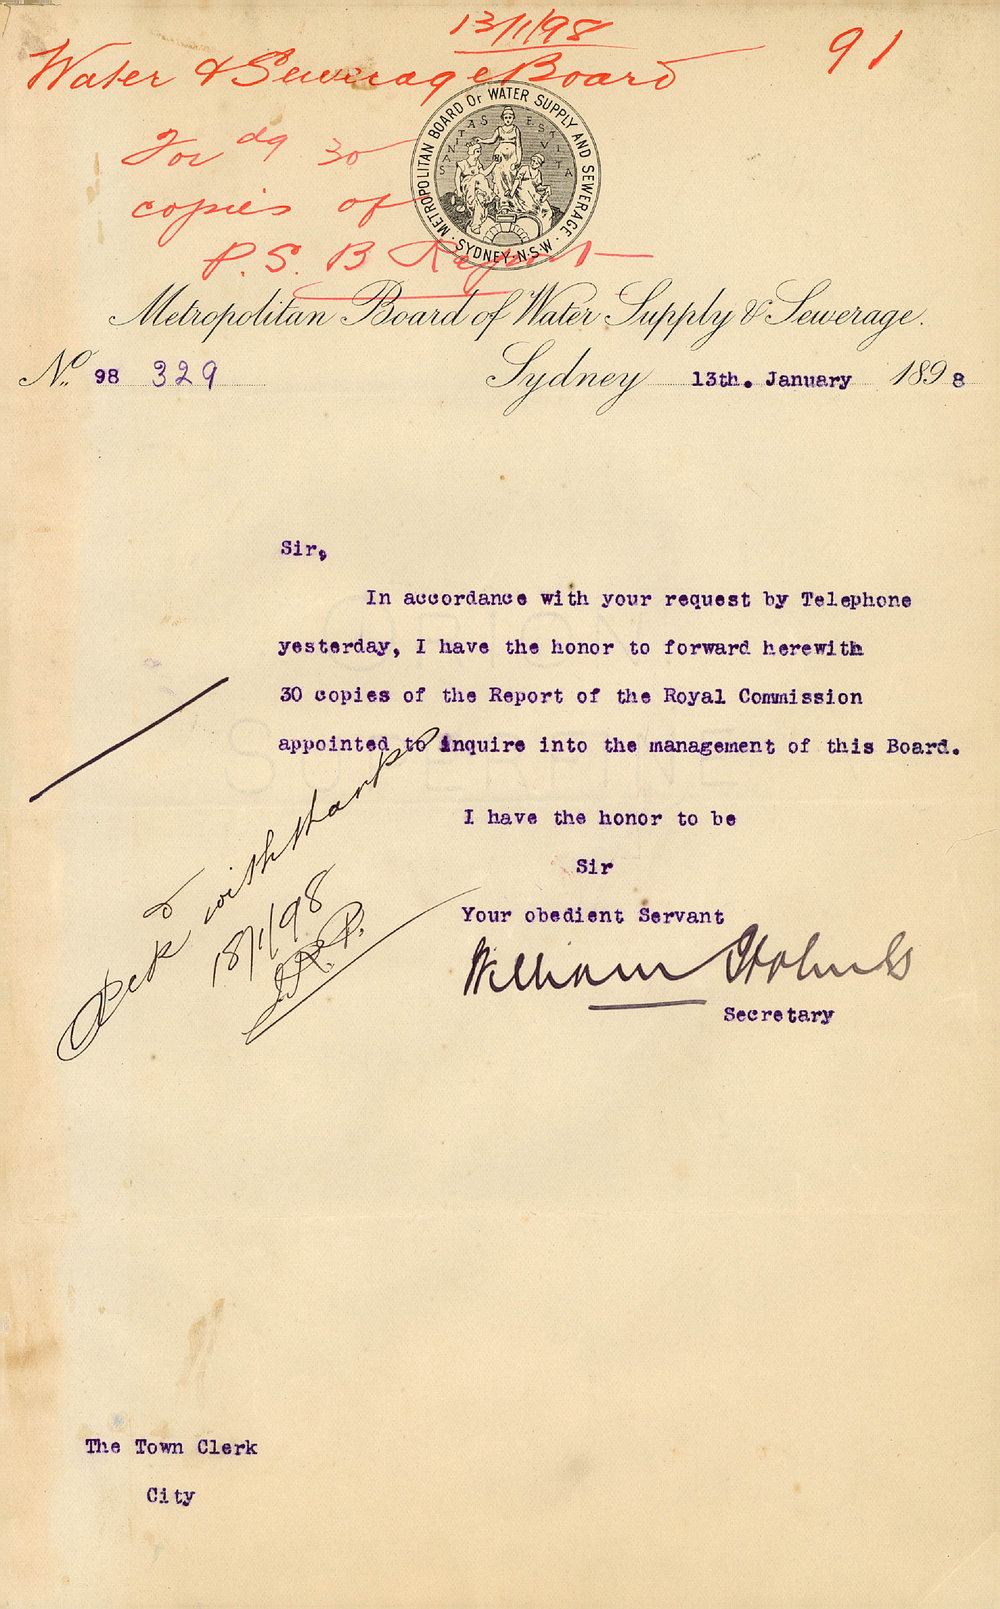 13/1/98
Water & Sewerage Board
91
For dg 30
copies of
P.S. B Report
METROPOLITAN BOARD OF WATER SUPPLY AND SEWERAGE.
SANITAS EST VITA
· SYDNEY · N·S·W ·
Metropolitan Board of Water Supply & Sewerage.
No. 98 329
Sydney 13th. January 1898
Sir,
In accordance with your request by Telephone
yesterday, I have the honor to forward herewith
30 copies of the Report of the Royal Commission
appointed to inquire into the management of this Board.
I have the honor to be
Sir
Your obedient Servant
William Holmes
Secretary
Ackd with thanks
18/1/98
The Town Clerk
City